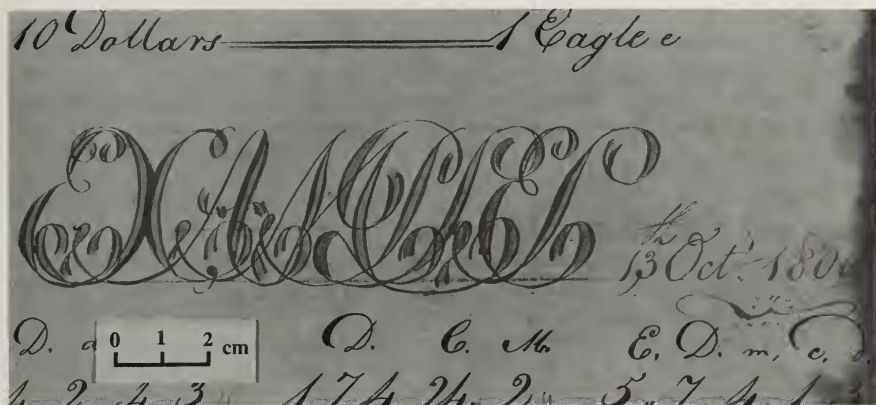 10 Dollars 1 Eagle e
EXAMPLES
13th Octr. 180
D. 0 1 2 cm D. C. M. E. D. m, c,
2 4 3 1 7 4 24 2 5 7 4 1 3